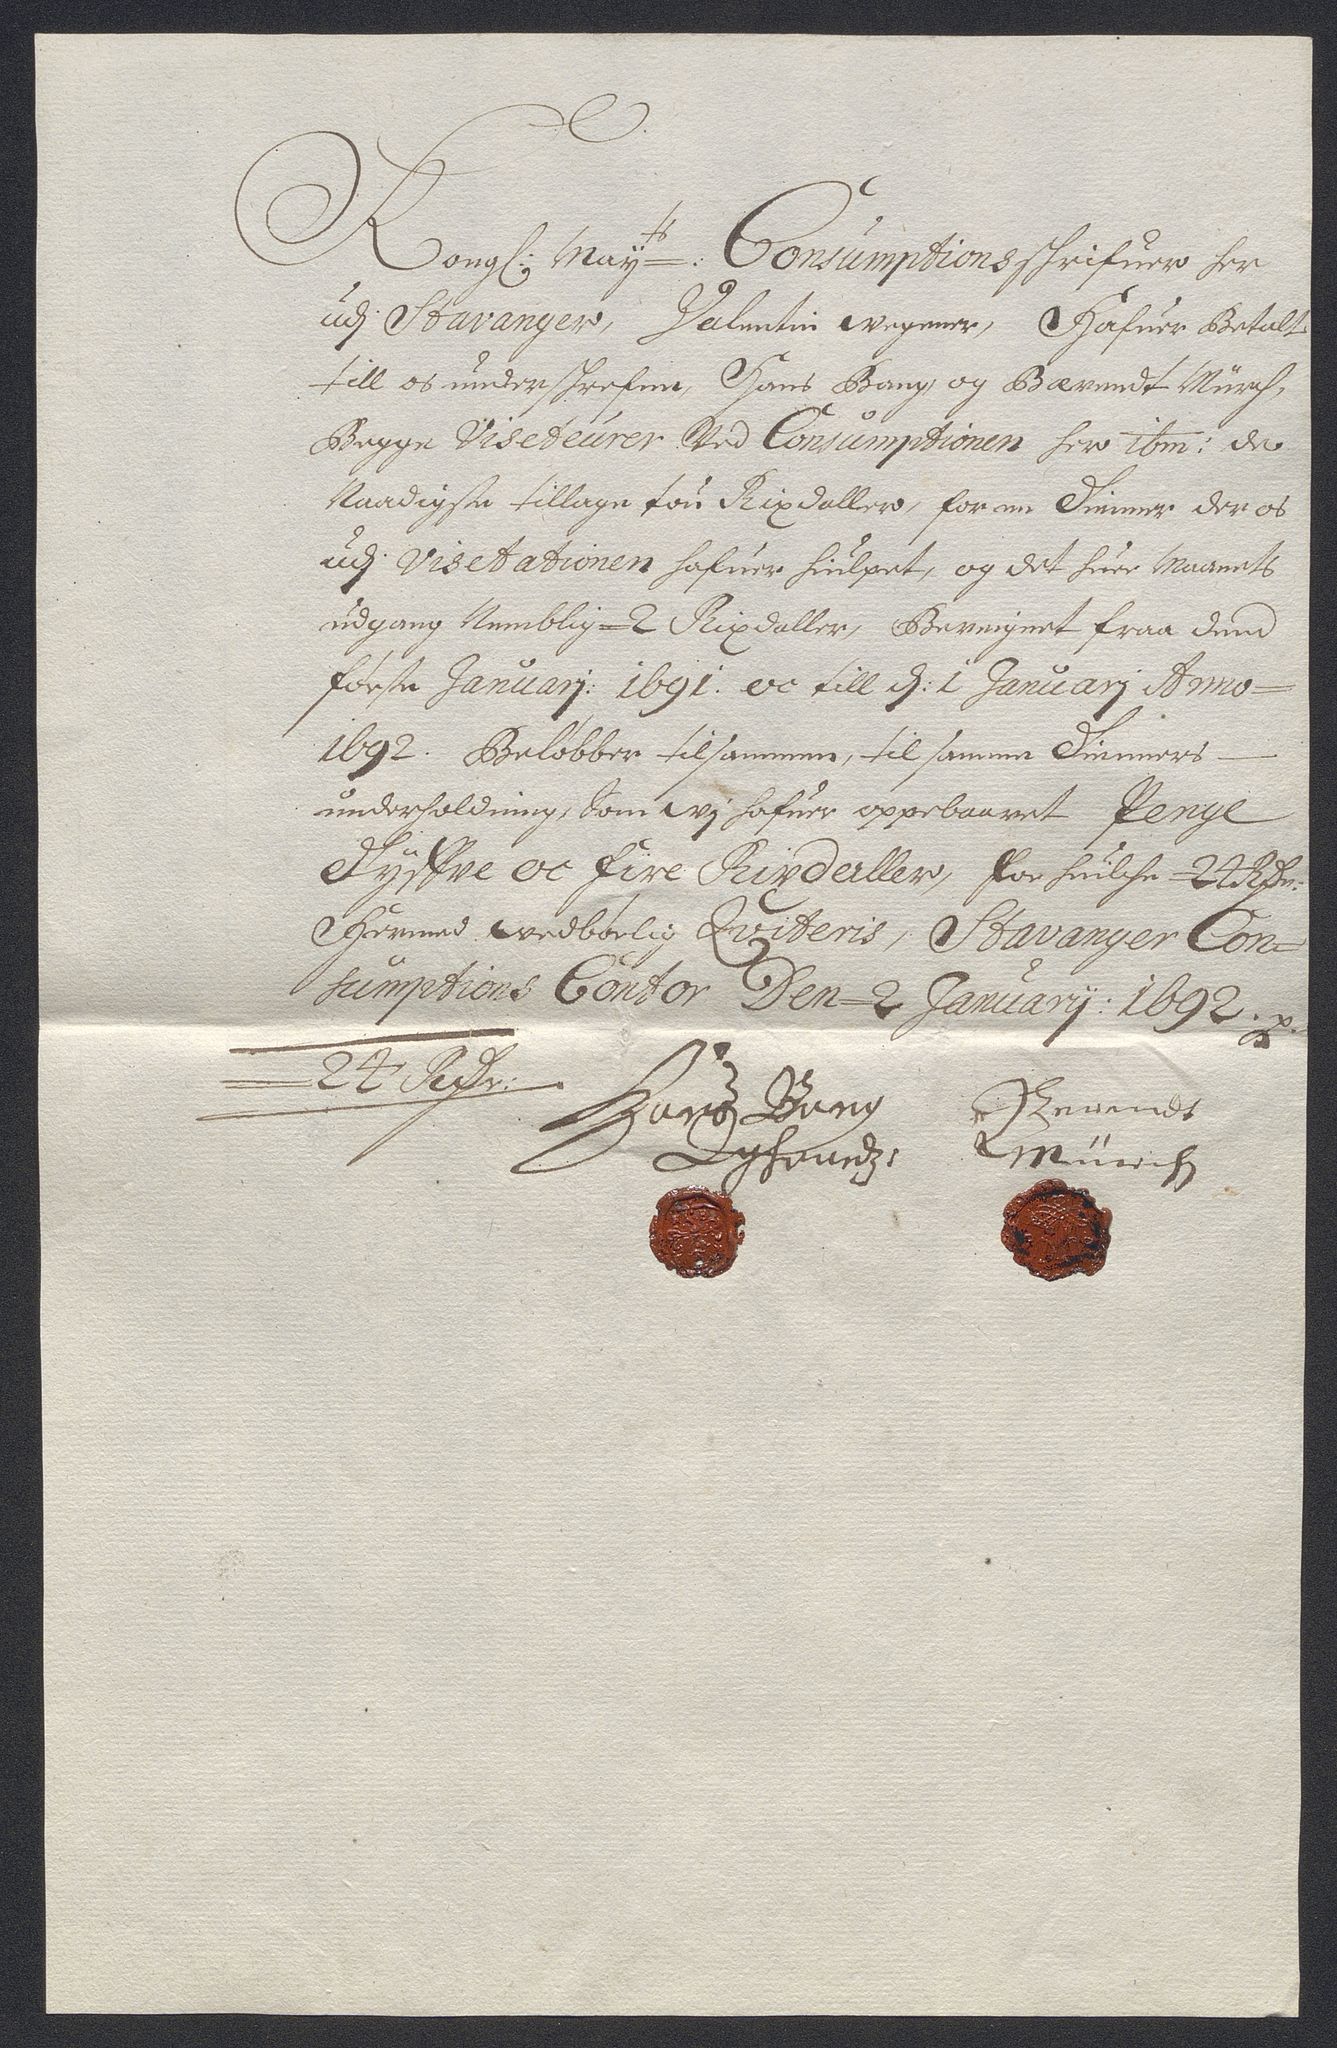 Kongl: May:ts: Consumptionsschrifuer her
udj Stavanger, Valentin wegener, Hafuer Betalt
till os underschrefne, Hans Bang, og Bærendt Mürch,
Begge Viseteurer Ved Consumptionen her ibm: de
Naadigste tillagte tou Rixdaller, for en Thienner der os
udj Visetationen hafuer hiulpet, og det huer Maanets
udgang Nemblig=2 Rixdaller, Bereignet fraa dend
første Januarj: 1691. oc till d: 1 Januarj Anno=
1692. Beløbber tilsammen, til samme Thienners —
underholdning, Som wj hafuer oppebaaret Penge
Tyffve oc fire Rixdaller, for huilche =24 Rdr:
Hermed vedbørlig Qviteris, Stavanger Con=
sumptions Contor Den=2 Januarij: 1692.
=24 Rdr:
Hans Bang Berendt
Mürch